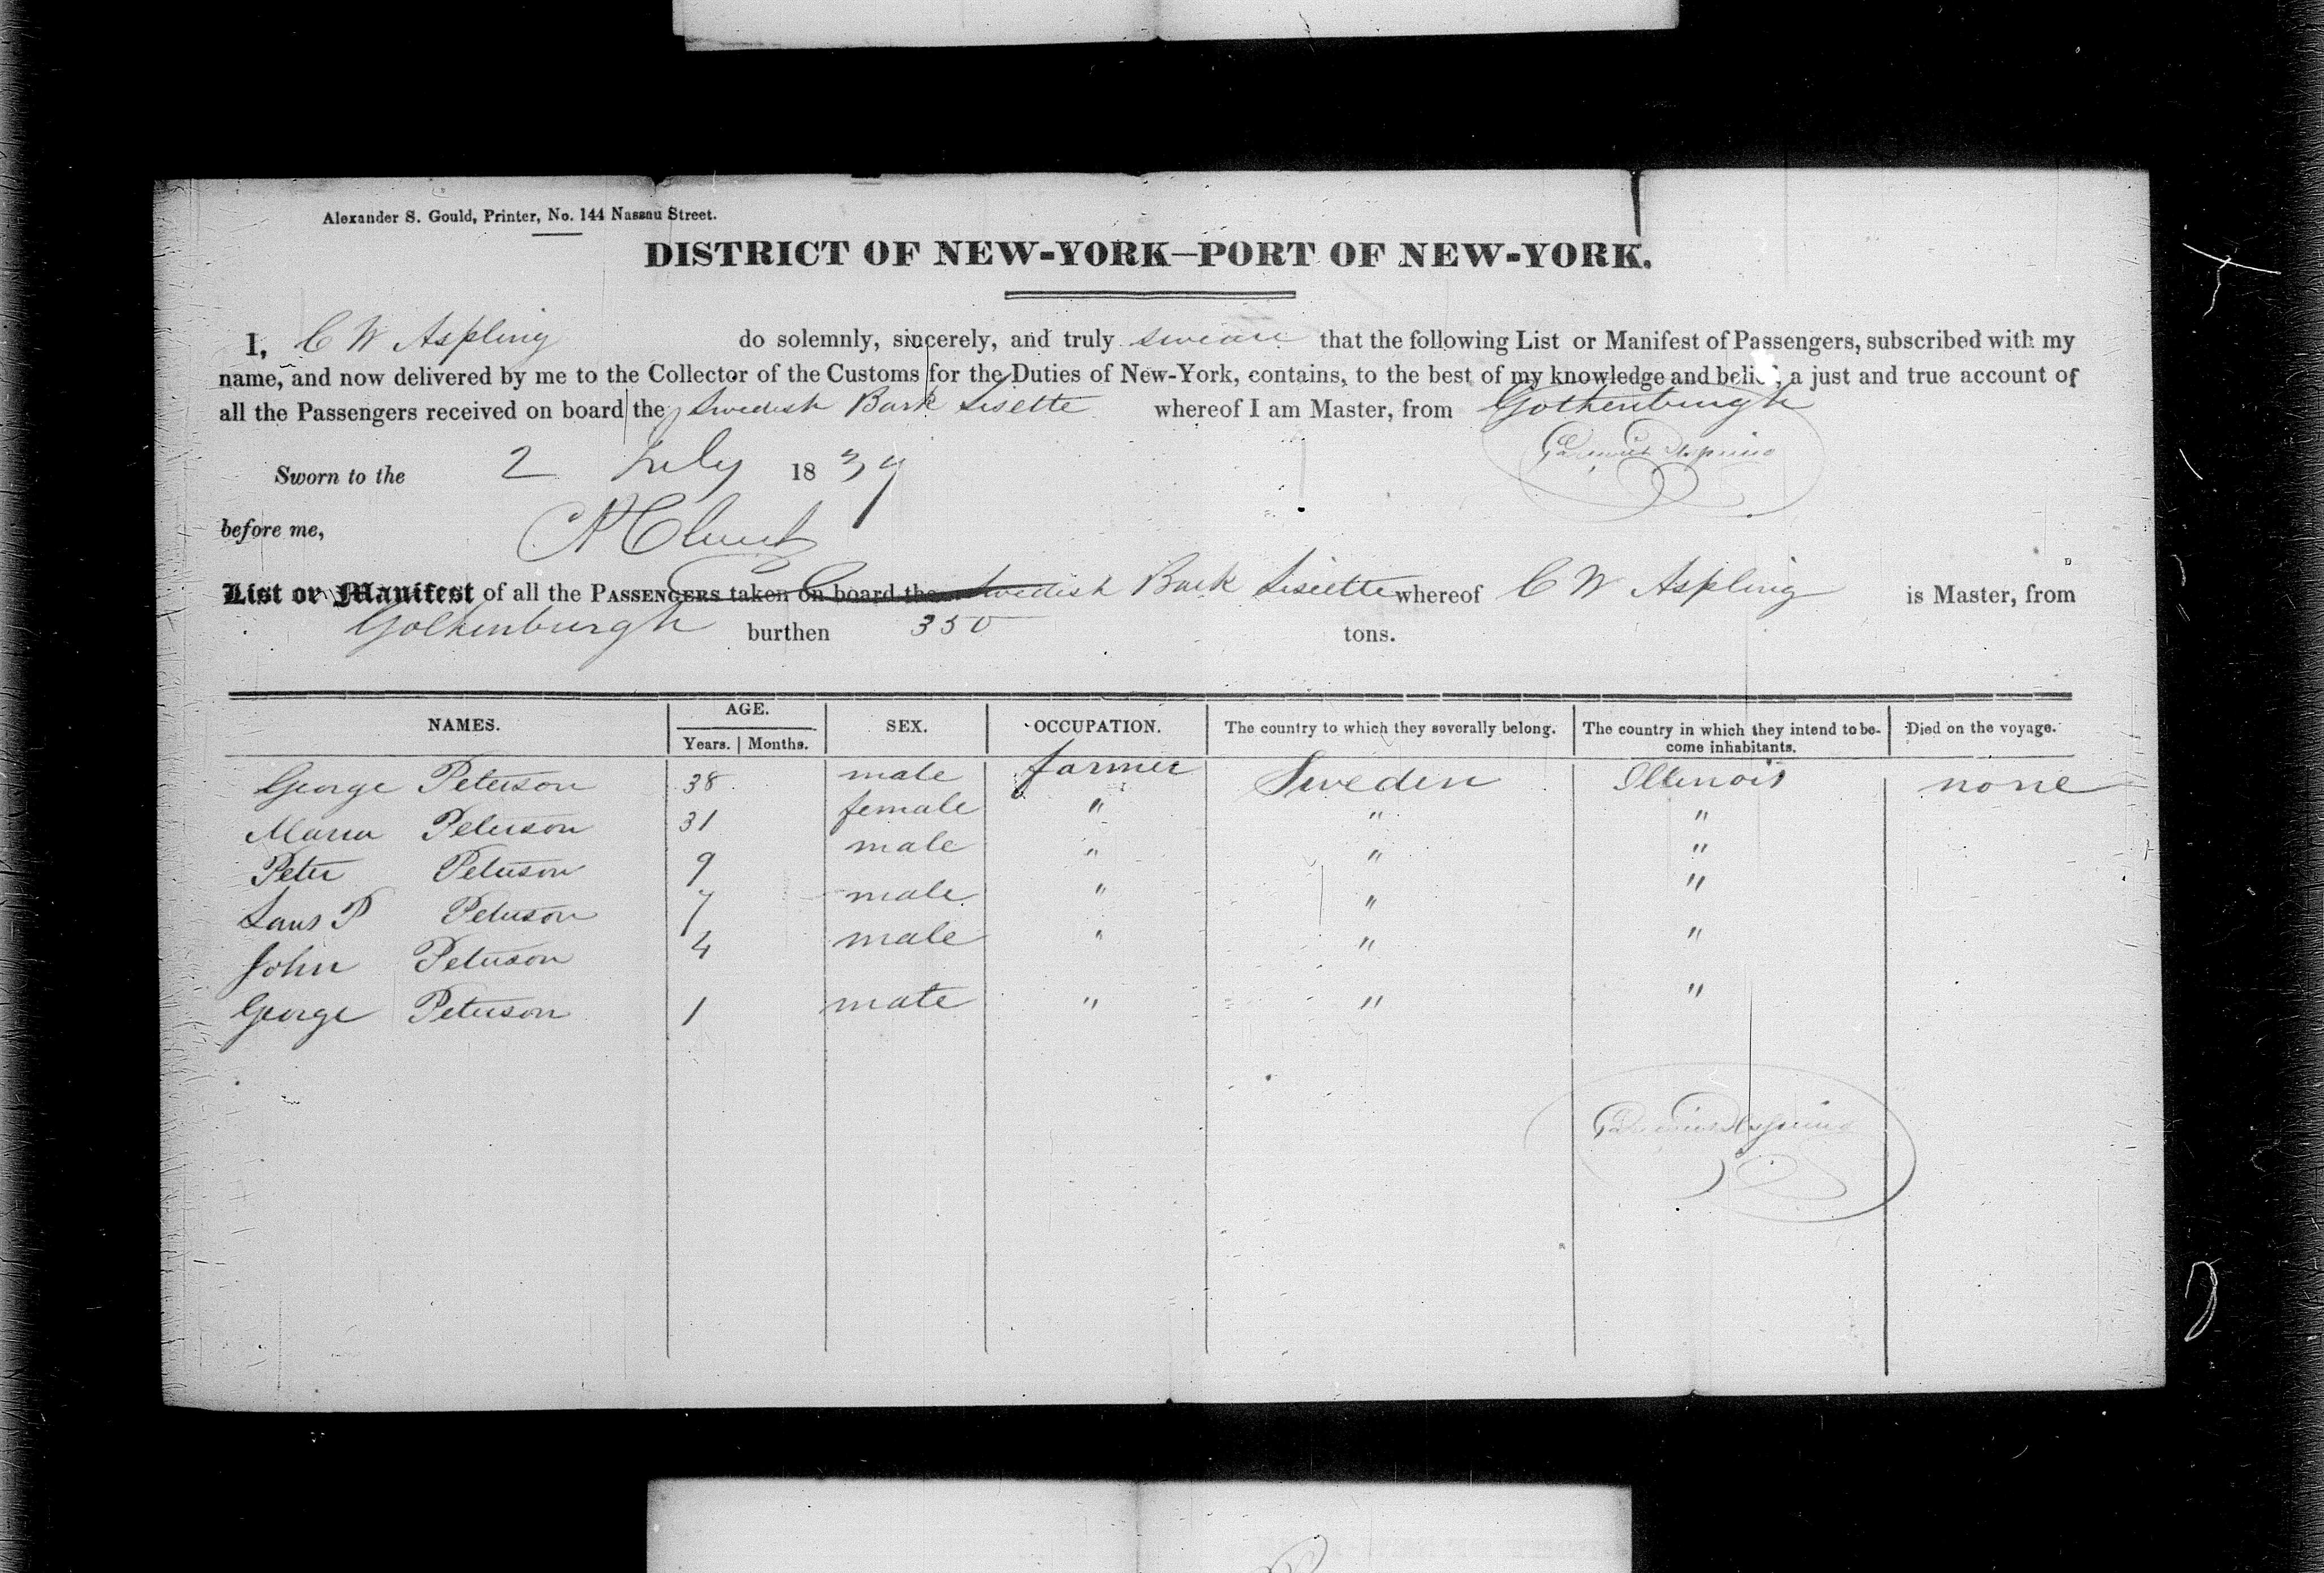 Alexander S. Gould, Printer, No. 144 Nassau Street.
DISTRICT OF NEW-YORK—PORT OF NEW-YORK.
I, C W Aspling do solemnly, sincerely, and truly swear that the following List or Manifest of Passengers, subscribed with my
name, and now delivered by me to the Collector of the Customs for the Duties of New-York, contains, to the best of my knowledge and belief, a just and true account of
all the Passengers received on board the Swedish Bark Lisette whereof I am Master, from Gothenburgh
Sworn to the 2 July 1839
before me,
List or Manifest of all the PASSENGERS taken on board the Swedish Bark Lisiette whereof C W Aspling is Master, from
Gothenburgh burthen 350 tons.
NAMES. AGE. SEX. OCCUPATION. The country to which they severally belong. The country in which they intend to be- Died on the voyage.
Years. Months. come inhabitants.
George Peterson 38 male farmer Sweden Illinois none
Maria Peterson 31 female " " "
Peter Peterson 9 male " " "
Lars P Peterson 7 male " " "
John Peterson 4 male " " "
George Peterson 1 male " " "